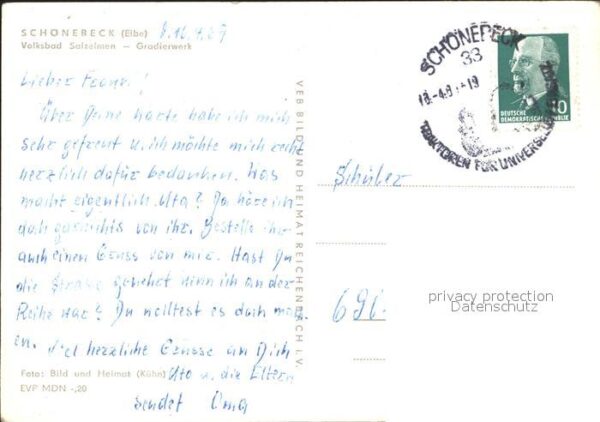 SCHÖNEBECK (Elbe)
Volksbad Salzelmen – Gradierwerk
Lieber Frank!
Über Deine Karte habe ich mich
sehr gefreut u. ich möchte mich recht
herzlich dafür bedanken. Was
macht eigentlich Uta? Da höre ich
doch garnichts von ihr. Bestelle ihr
auch einen Gruss von mir. Hast Du
die Strasse gekehrt wenn ich an der
Reihe war? Du wolltest es doch mach
en. Viel herzliche Grüsse an Dich
Uta u. die Eltern
sendet Oma
Foto: Bild und Heimat (Kühn)
EVP MDN -,20
VEB BILD UND HEIMAT REICHENBACH I. V.
SCHÖNEBECK
33
TRAKTOREN FÜR
DEUTSCHE
DEMOKRATISCHE REPUBLIK
Schüler
privacy protection
Datenschutz